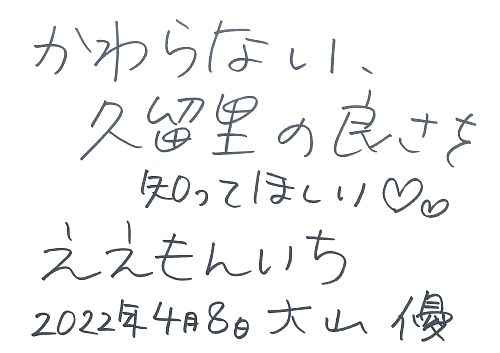 かわらない、
久留里の良さを
知ってほしい♡♡
ええもんいち
2022年4月8日 大山 優